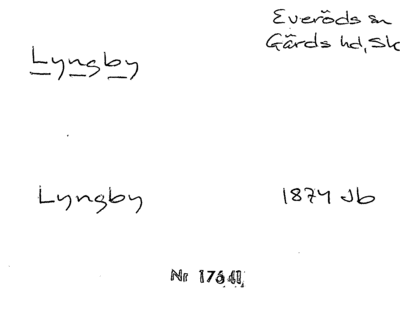 Everöds sn
Gärds hd, Sk
Lyngby
Lyngby
1874 Jb
Nr 17641